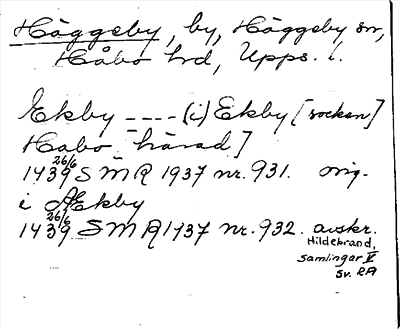 Häggeby, by, Häggeby sn,
Håbo hrd, Upps. l.
Ekby ---- (i) Ekby [socken]
Habo härad]
1439 26/6 SMR 1937 nr. 931. orig.
i Ækby
1439 26/6 SMR 1937 nr. 932. avskr.
Hildebrand,
Samlingar V
Sv. RA